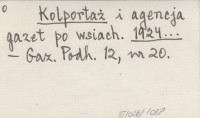 o
Kolportaż i agencja
gazet po wsiach. 1924...
— Gaz. Podh. 12, nr 20.